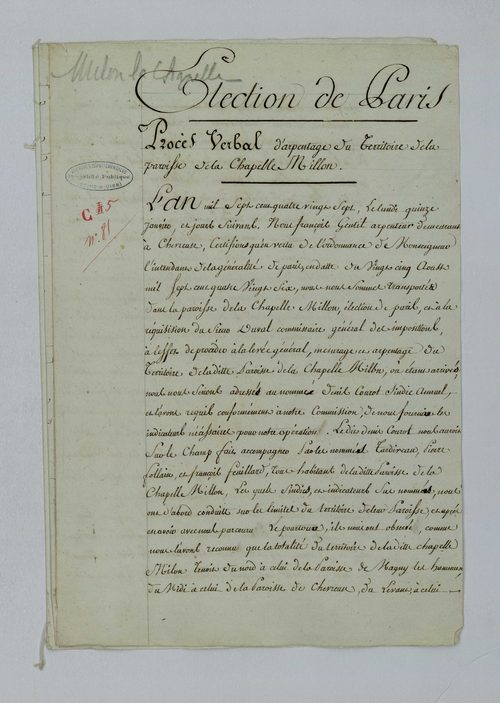 Milon la Chapelle
Election de Paris
Procès Verbal d'arpentage du Territoire de la
paroisse de la Chapelle Millon.
C 5
n° 81
L'an mil Sept cent quatre vingt Sept, Le lundi quinze
janvier, et jours Suivans, Nous françois Gentil arpenteur demeurant
à Chevreuse, Certifions qu'en vertu de l'ordonnance de Monseigneur
l'intendant de la généralité de paris, en datte du Vingt cinq Aoust
mil Sept cent quatre Vingt Six, nous nous Sommes transportés
dans la paroisse de la Chapelle Millon, élection de paris, et à la
requisition du Sieur Duval commissaire général des impositions,
à l'effet de procéder à la levée général, mesurage et arpentage Du
Territoire de la ditte Paroisse de la Chapelle Millon, où étant arrivés,
nous nous Serions adressés au nommé Denis Courot Sindic Annuel,
et l'avons requis conformément à notre Commission, de nous fournir les
indicateurs nécessaires pour notre opération. Ledit Denis Courot nous auroit
Sur le Champ fait accompagner Par les nommés Tardiveau, Pierre
follain, et françois feuillard, Tous habitans de la ditte Paroisse de la
Chapelle Millon, Les quels Sindic, et indicateurs Sus nommés, nous
ont d'abord conduits sur les limites du territoire de leur Paroisse, et après
en avoir avec nous parcouru Le pourtour, ils nous ont observé, comme
nous l'avons reconnu que la totalité du territoire de la ditte chapelle
Milon Tenoit du nord à celui de la Paroisse de Magny les hameaux,
du Midi à celui de la Paroisse de Chevreuse, du Levant, à celui